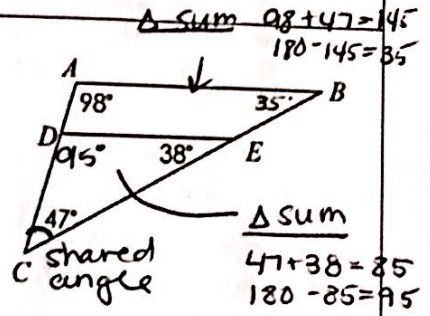 Δ sum 98+47=145
180-145=35
A
B
98°
35°
D
95°
38°
E
47°
C
shared
angle
Δ sum
47+38=85
180-85=95